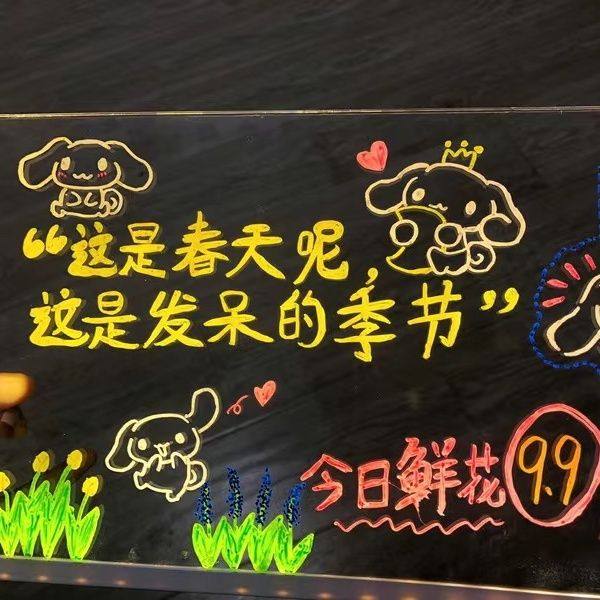 “这是春天呢，
这是发呆的季节”
今日鲜花 9.9